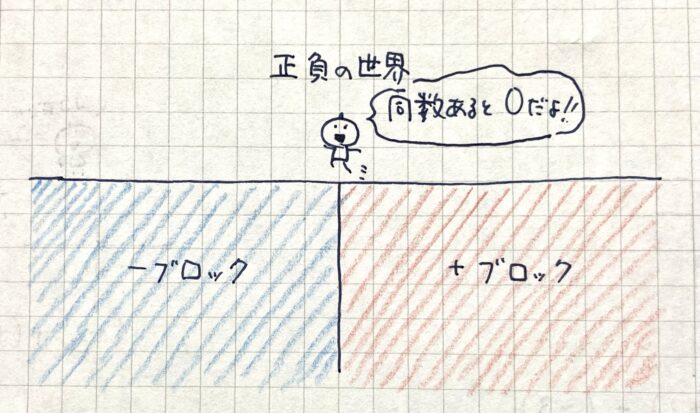 正負の世界
同数あると0だよ!!
-ブロック
+ブロック